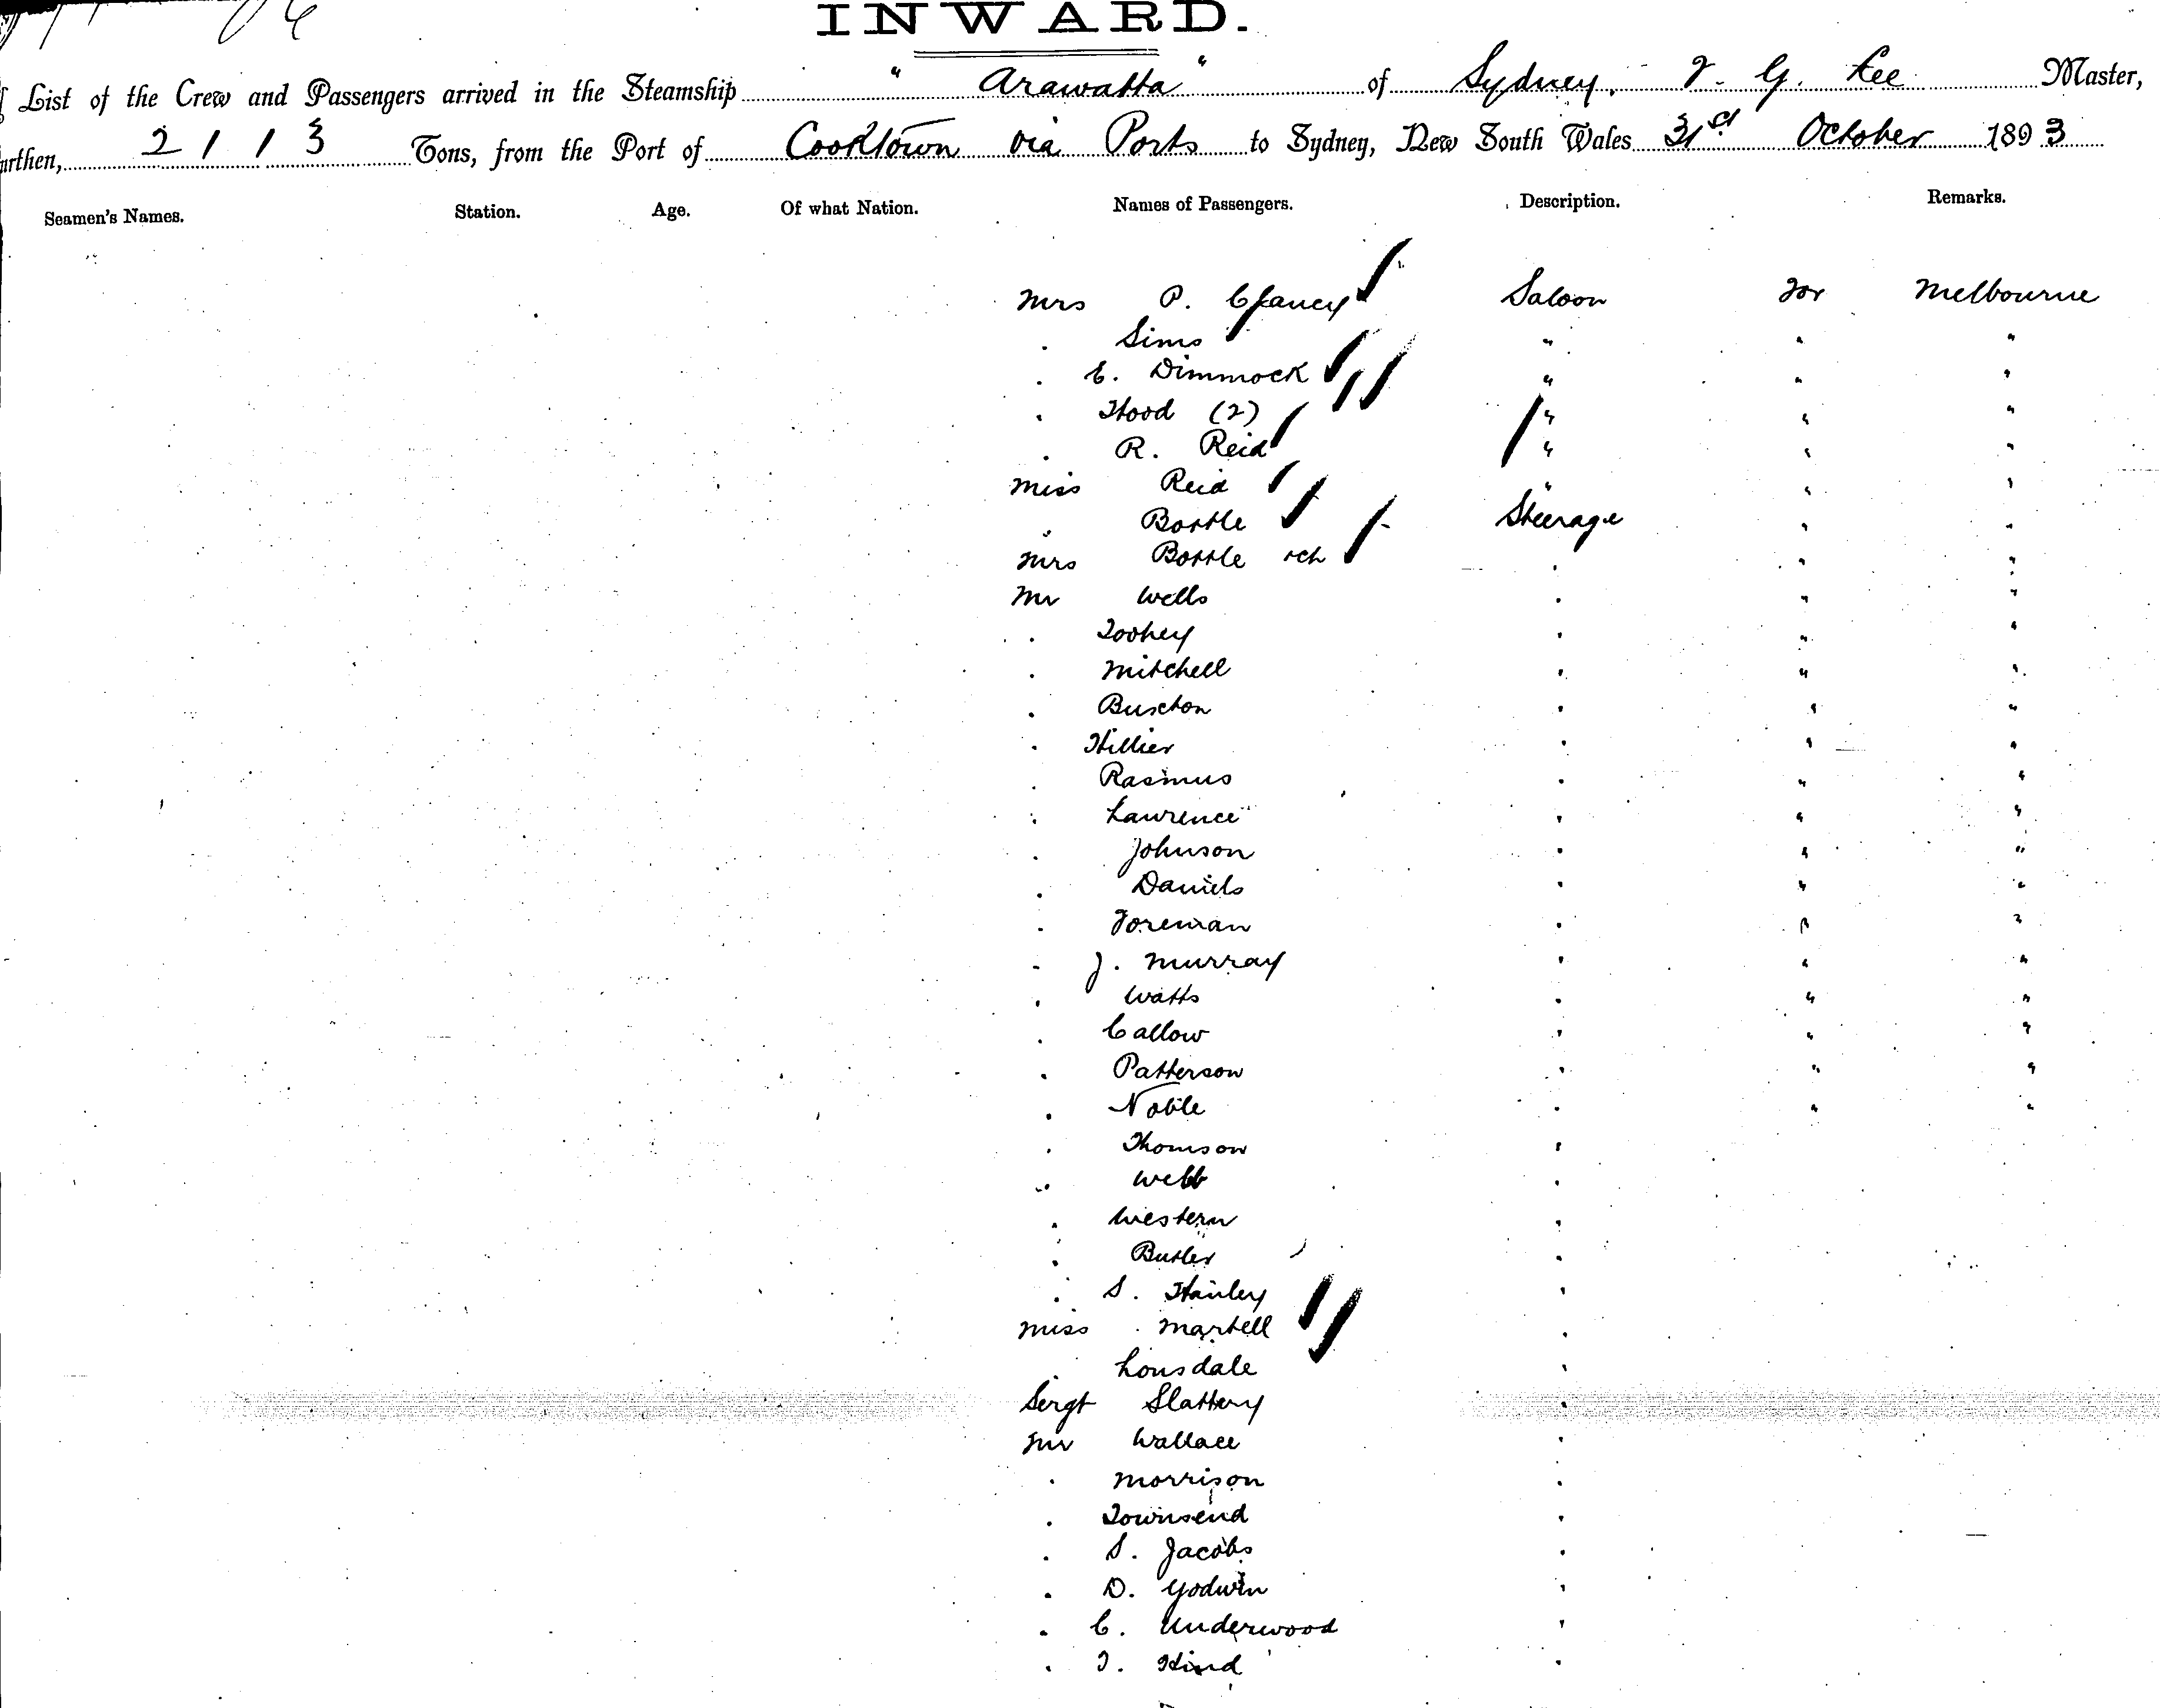 INWARD.
List of the Crew and Passengers arrived in the Steamship "Arawatta" of Sydney, J. G. Lee Master,
urthen, 2113 Tons, from the Port of Cooktown via Ports to Sydney, New South Wales 31st October 1893
Seamen's Names. Station. Age. Of what Nation. Names of Passengers. Description. Remarks.
Mrs P. Clancy Saloon For Melbourne
. Sims " " "
. E. Dimmock " " "
. Hood (2) " " "
. R. Reid " " "
Miss Reid " " "
. Bottle Steerage " "
Mrs Bottle +ch . " "
Mr Wells . " "
. Toohey . " "
. Mitchell . " "
. Buxton . " "
. Hillier . " "
. Rasmus . " "
. Lawrence . " "
. Johnson . " "
. Daniels . " "
. Foreman . " "
. J. Murray . " "
. Watts . " "
. Callow . " "
. Patterson . " "
. Noble . " "
. Thomson .
. Webb .
. Western .
. Butler .
. S. Hanley .
Miss Martell .
. Lonsdale .
Sergt Slattery .
Mr Wallace .
. Morrison .
. Townsend .
. S. Jacobs .
. D. Godwin .
. C. Underwood .
. T. Hind .